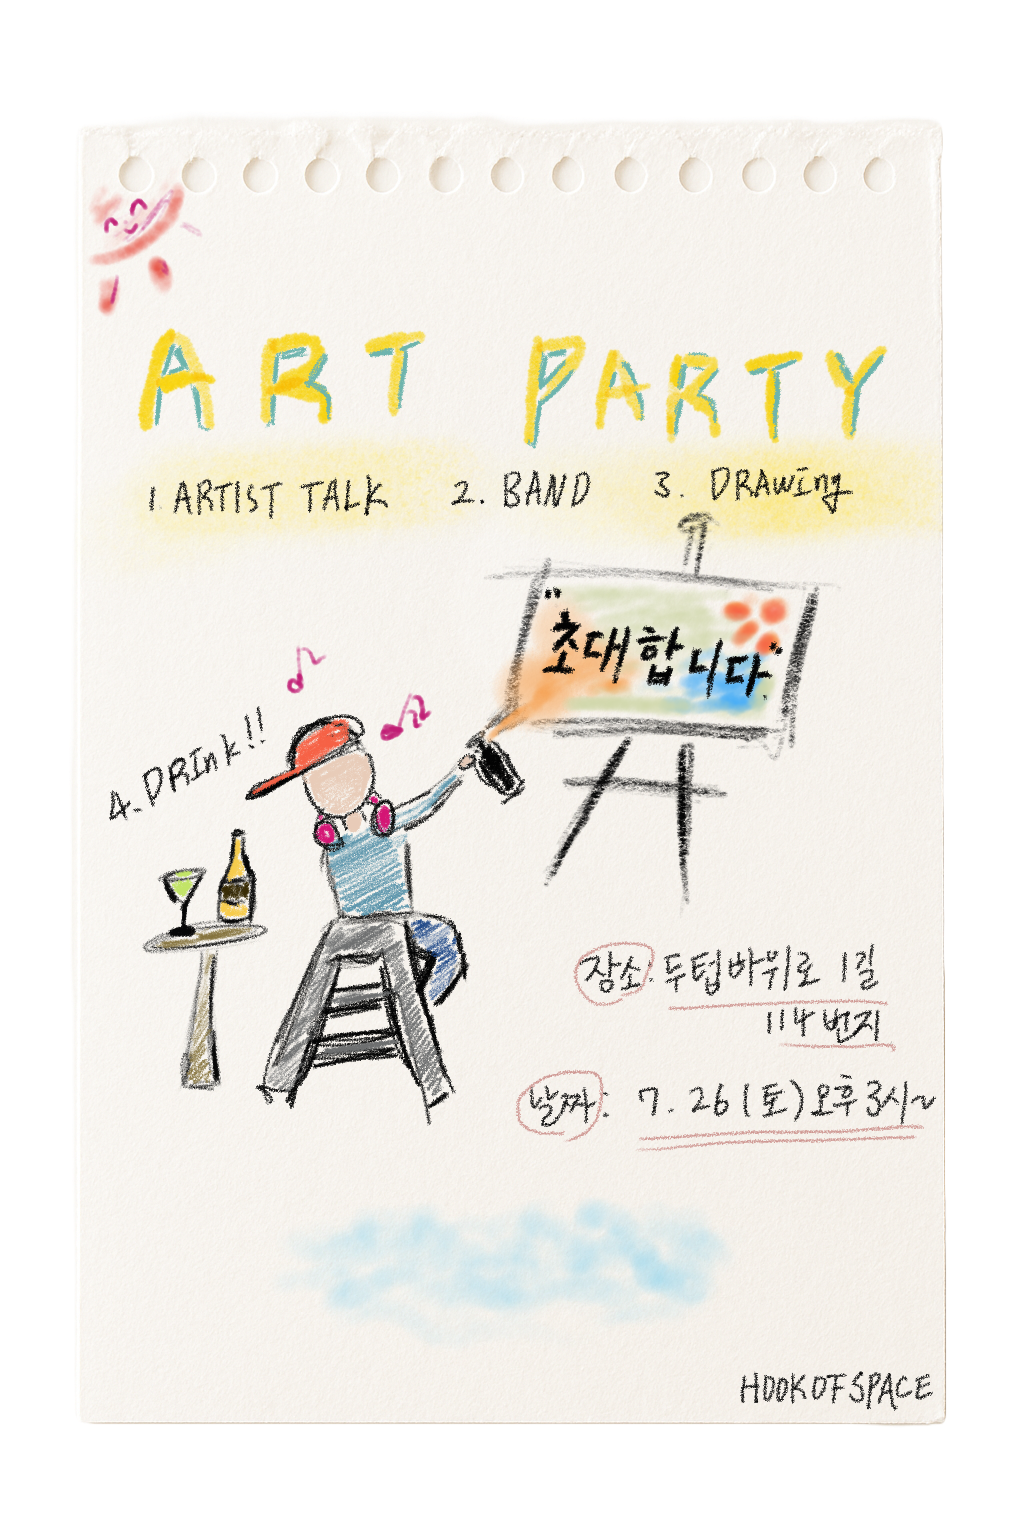 ART PARTY
1. ARTIST TALK 2. BAND 3. DRAWing
"초대합니다"
4. DRInk!!
장소. 두텁바위로 1길
114번지
날짜: 7. 26 (토) 오후 3시~
HOOKOFSPACE